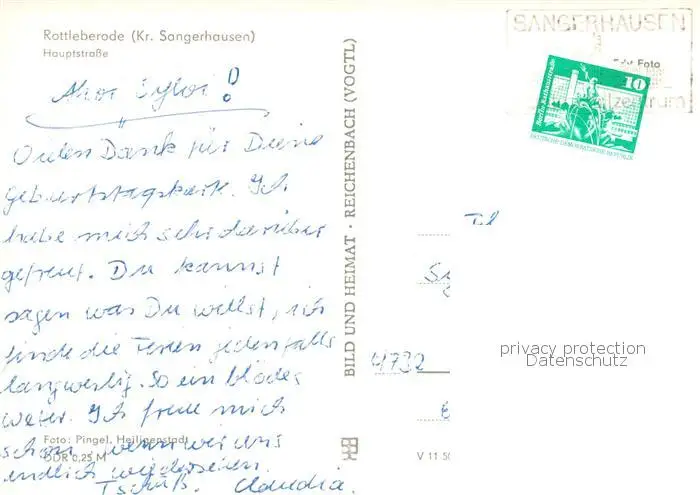 Rottleberode (Kr. Sangerhausen)
Hauptstraße
Ahoi Sylvi!
Vielen Dank für Deine
Geburtstagskarte. Ich
habe mich sehr darüber
gefreut. Du kannst
sagen was Du willst, ich
finde die Ferien jedenfalls
langweilig. So ein blödes
Weter. Ich freue mich
schon, wenn wir uns
endlich wiedersehen.
Tschüß. Claudia.
Foto: Pingel, Heiligenstadt
DDR 0,25 M
BILD UND HEIMAT · REICHENBACH (VOGTL)
SANGERHAUSEN
Foto
10
DEUTSCHE DEMOKRATISCHE REPUBLIK
4732
privacy protection
Datenschutz
V 11 50